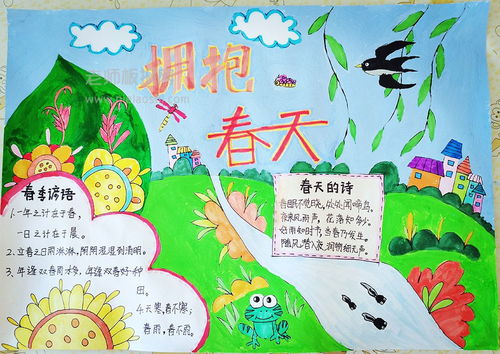 拥抱
春天
春季谚语
1.一年之计在于春,
一日之计在于晨。
2.立春之日雨淋淋,阴阴湿湿到清明。
3.年逢双春雨水多,年逢双春好种
田。
4.天寒,春不寒;
春雨,春不
春天的诗
春眠不觉晓,处处闻啼鸟。
夜来风雨声,花落知多少。
好雨知时节,当春乃发生。
随风潜入夜,润物细无声。